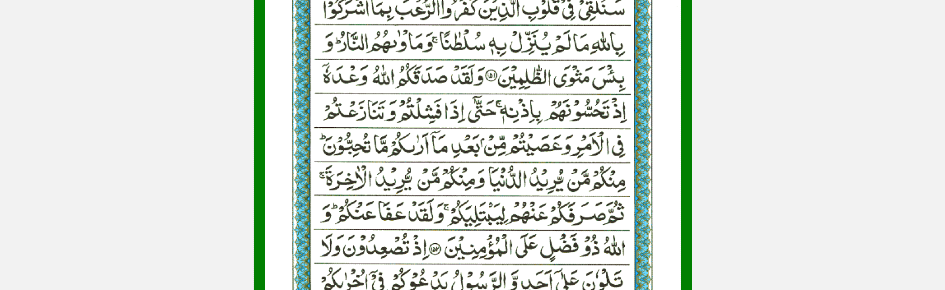 سَنُلْقِیْ فِیْ قُلُوْبِ الَّذِیْنَ كَفَرُوا الرُّعْبَ بِمَاۤ اَشْرَكُوْا
بِاللّٰهِ مَا لَمْ یُنَزِّلْ بِهٖ سُلْطٰنًا ۚ وَ مَاْوٰىهُمُ النَّارُ ؕ وَ
بِئْسَ مَثْوَی الظّٰلِمِیْنَ ﴿۱۵۱﴾ وَ لَقَدْ صَدَقَكُمُ اللّٰهُ وَعْدَهٗۤ
اِذْ تَحُسُّوْنَهُمْ بِاِذْنِهٖ ۚ حَتّٰۤی اِذَا فَشِلْتُمْ وَ تَنَازَعْتُمْ
فِی الْاَمْرِ وَ عَصَیْتُمْ مِّنْۢ بَعْدِ مَاۤ اَرٰىكُمْ مَّا تُحِبُّوْنَ ؕ
مِنْكُمْ مَّنْ یُّرِیْدُ الدُّنْیَا وَ مِنْكُمْ مَّنْ یُّرِیْدُ الْاٰخِرَةَ ۚ
ثُمَّ صَرَفَكُمْ عَنْهُمْ لِیَبْتَلِیَكُمْ ۚ وَ لَقَدْ عَفَا عَنْكُمْ ؕ وَ
اللّٰهُ ذُوْ فَضْلٍ عَلَی الْمُؤْمِنِیْنَ ﴿۱۵۲﴾ اِذْ تُصْعِدُوْنَ وَ لَا
تَلْوٗنَ عَلٰۤی اَحَدٍ وَّ الرَّسُوْلُ یَدْعُوْكُمْ فِیْۤ اُخْرٰىكُمْ